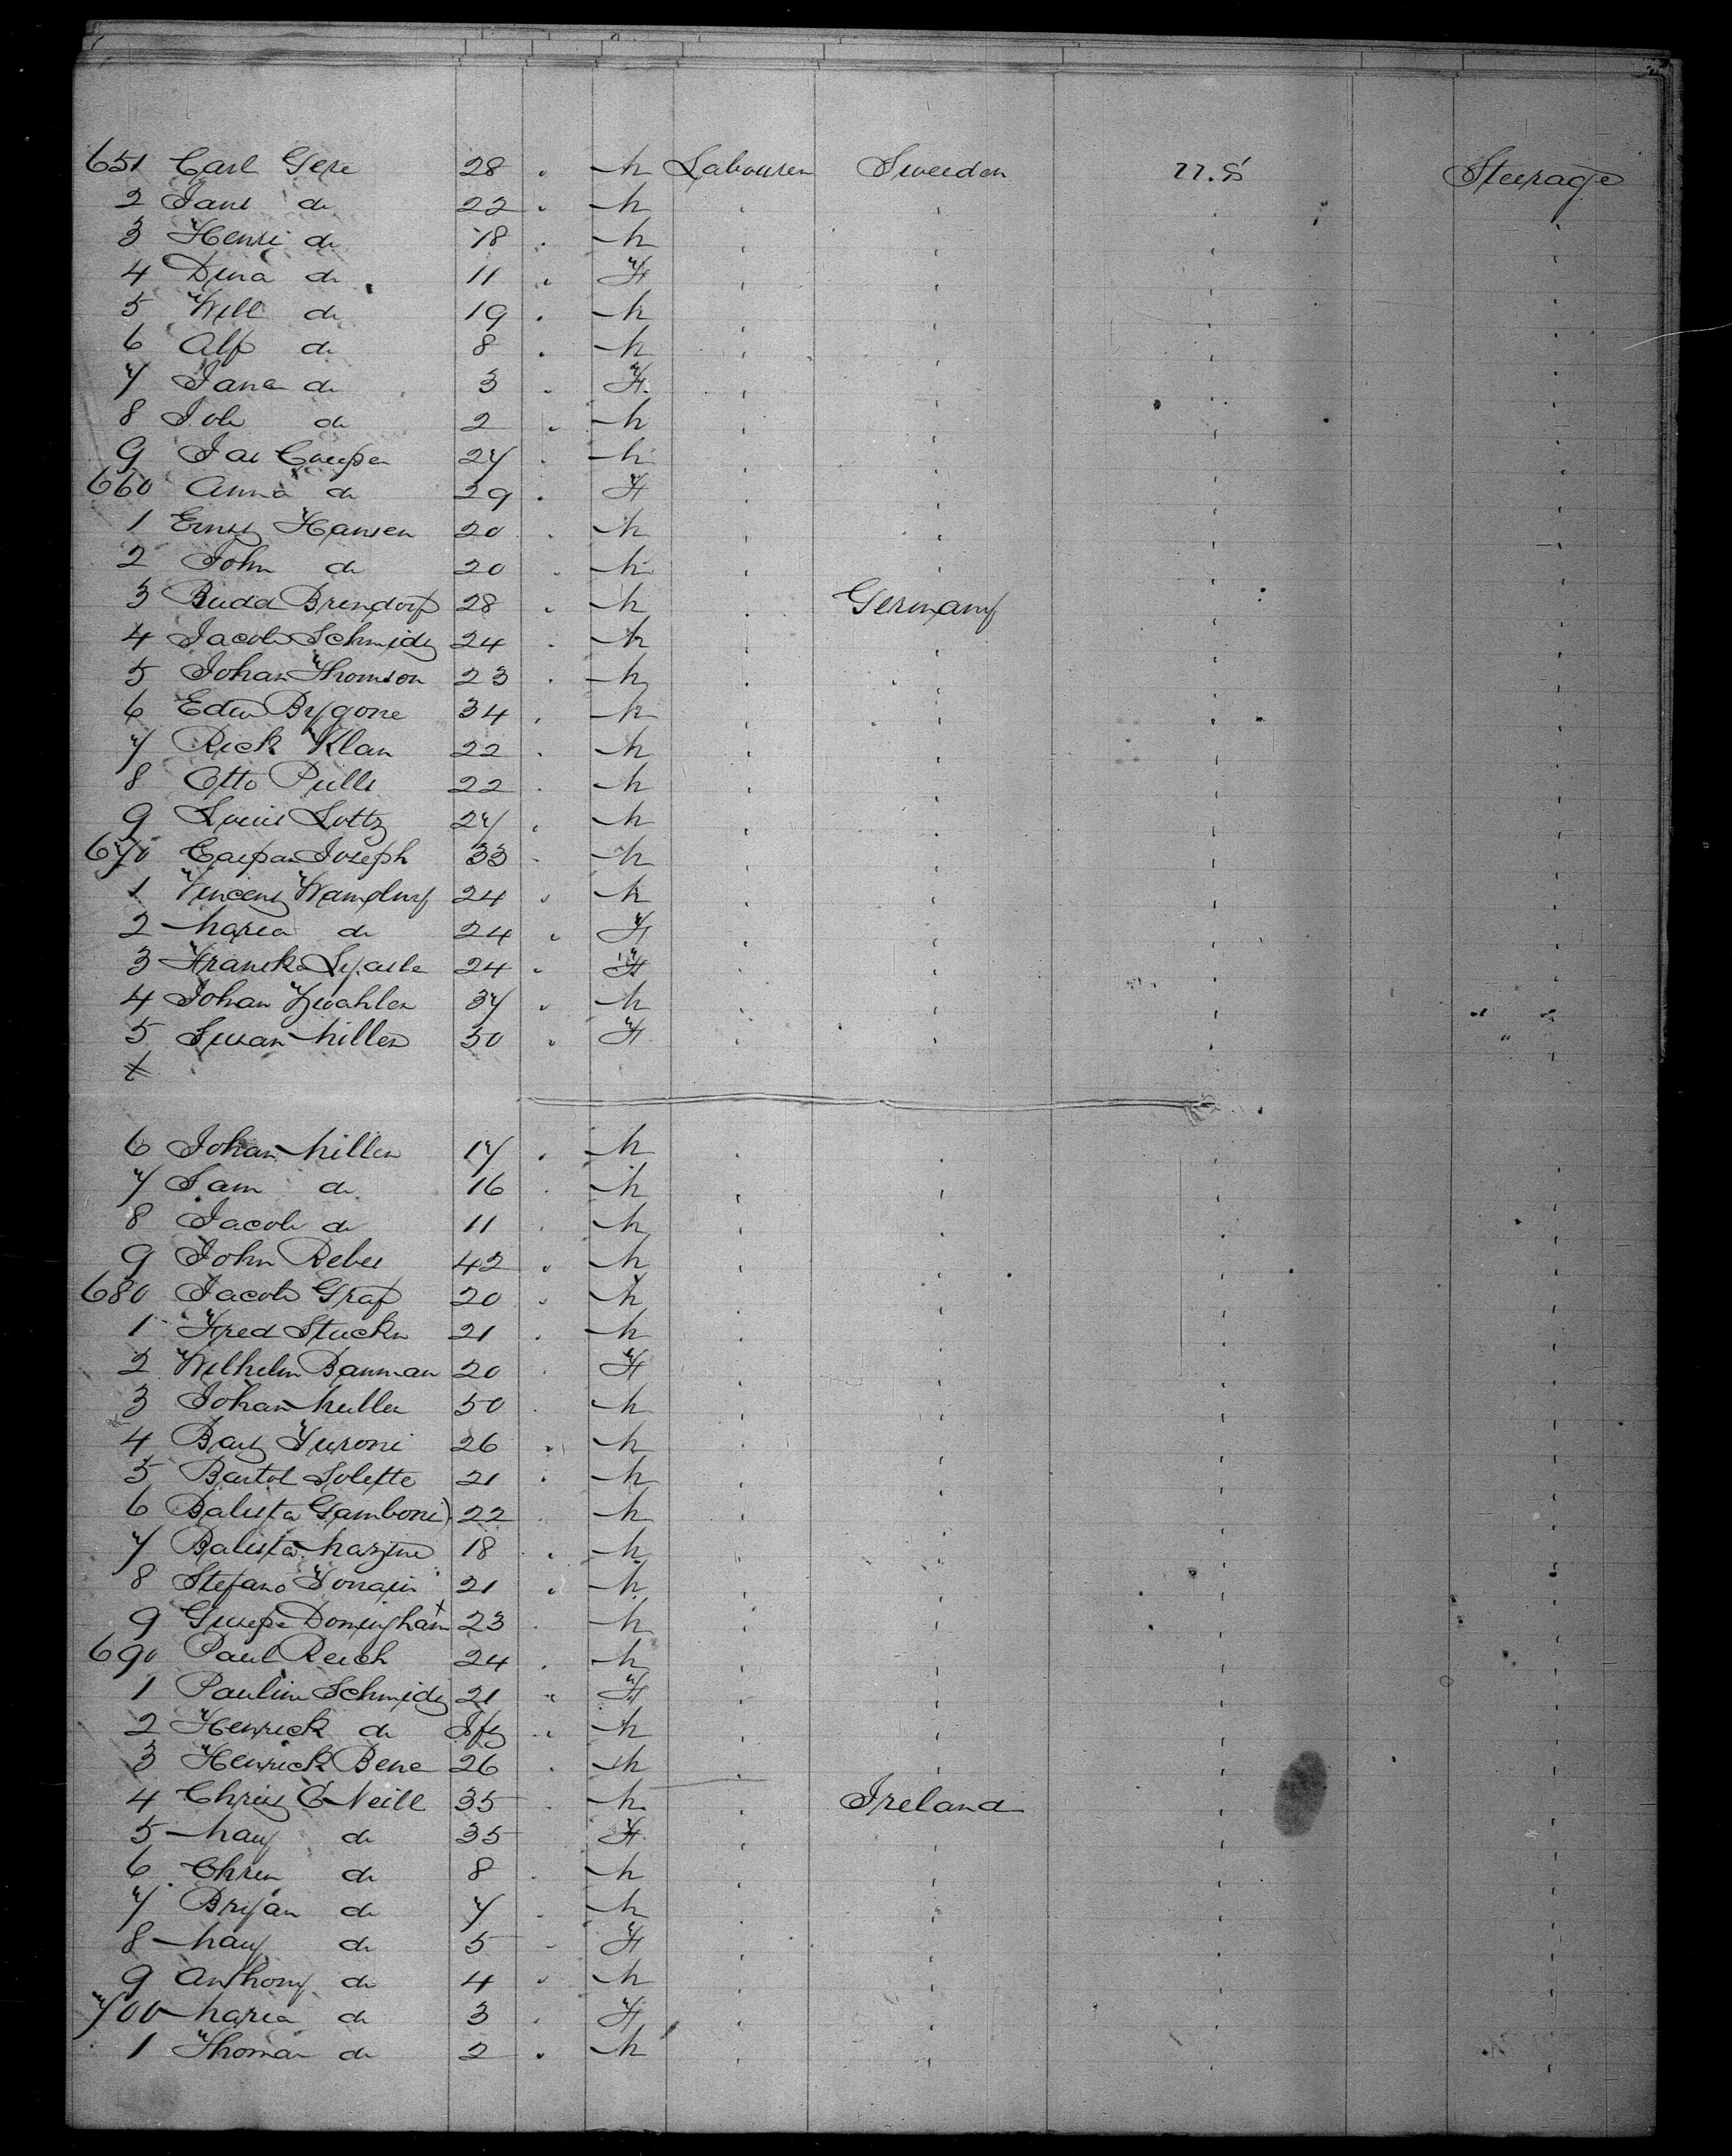 651 Carl Gere 28 " M Labourer Sweeden U.S. Steerage
2 Jans do 22 " M " " " "
3 Henri do 18 " M " " " "
4 Dina do 11 " F " " " "
5 Will do 19 " M " " " "
6 Alf do 8 " M " " " "
7 Jane do 3 " F " " " "
8 Joh do 2 " M " " " "
9 Jas Cooper 27 " M " " " "
660 Anna do 29 " F " " " "
1 Ernst Hansen 20 " M " " " "
2 John do 20 " M " " " "
3 Brendorf 28 " M " Germany " "
4 Jacob Schmidt 24 " M " " " "
5 Johan Thomson 23 " M " " " "
6 Edw Brygone 34 " M " " " "
7 Rick Klan 22 " M " " " "
8 Otto Pills 22 " M " " " "
9 Louis Lottz 27 " M " " " "
670 Caspar Joseph 33 " M " " " "
1 Vincent 24 " M " " " "
2 Maria do 24 " F " " " "
3 24 " F " " " "
4 Johan Zwahlen 37 " M " " " "
5 Susan Miller 50 " F " " " "
x
6 Johan Miller 17 " M " " " "
7 Sam do 16 " M " " " "
8 Jacob do 11 " M " " " "
9 John Reber 42 " M " " " "
680 Jacob Graf 20 " M " " " "
1 Fred Stucki 21 " M " " " "
2 Wilhelm Bauman 20 " F " " " "
3 Johan Muller 50 " M " " " "
4 Bart 26 " M " " " "
5 Bartol Solette 21 " M " " " "
6 Batista Gamboni 22 " M " " " "
7 Batista Mazine 18 " M " " " "
8 Stefano 21 " M " " " "
9 Gusepe 23 " M " " " "
690 Paul Reich 24 " M " " " "
1 Pauline Schmidt 21 " F " " " "
2 Henrick do Inft " M " " " "
3 Henrick Bene 26 " M " " " "
4 Chris O'Neill 35 " M " Ireland " "
5 Mary do 35 F " " " "
6 Chris do 8 " M " " " "
7 Bryan do 7 " M " " " "
8 Mary do 5 " F " " " "
9 Anthony do 4 " M " " " "
700 Maria do 3 " F " " " "
1 Thomas do 2 " M " " " "